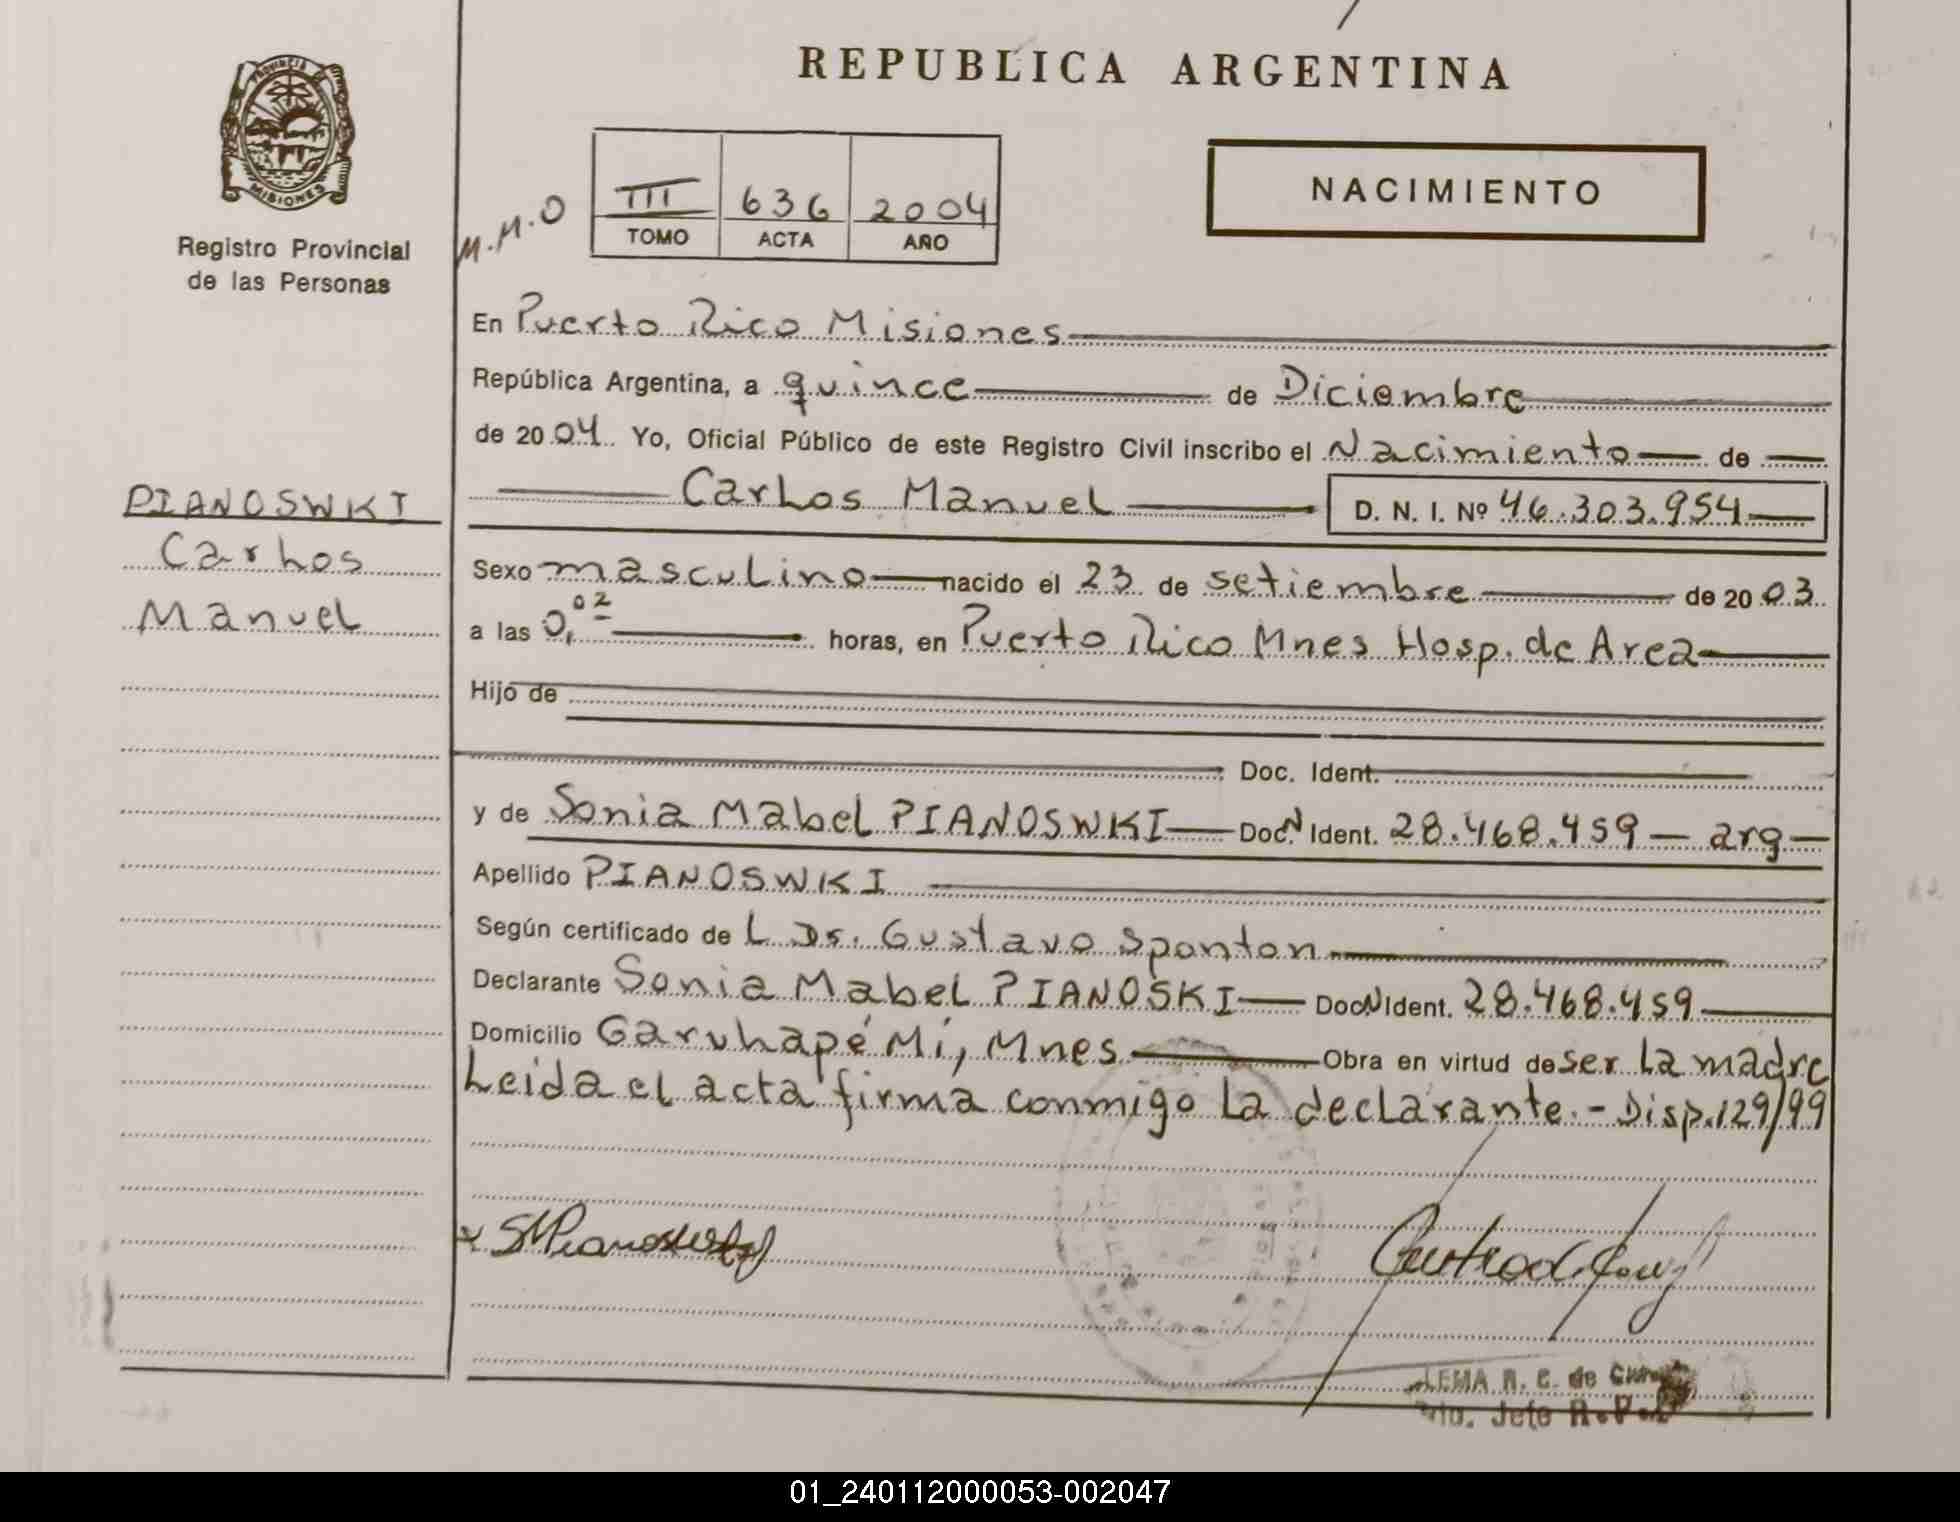 REPUBLICA ARGENTINA
PROVINCIA DE
MISIONES
Registro Provincial
de las Personas
M.M.O
III 636 2004
TOMO ACTA AÑO
NACIMIENTO
En Puerto Rico Misiones
República Argentina, a quince de Diciembre
de 2004 Yo, Oficial Público de este Registro Civil inscribo el Nacimiento de
PIANOSWKI
Carlos
Manuel
Carlos Manuel D. N. I. Nº 46.303.954
Sexo masculino nacido el 23 de setiembre de 2003
a las 0,02 horas, en Puerto Rico Mnes Hosp. de Area
Hijo de
Doc. Ident.
y de Sonia Mabel PIANOSWKI Doc.N Ident. 28.468.459 - arg
Apellido PIANOSWKI
Según certificado de L Dr. Gustavo Sponton
Declarante Sonia Mabel PIANOSKI Doc.N Ident. 28.468.459
Domicilio Garuhapé Mí, Mnes Obra en virtud de ser la madre
Leida el acta firma conmigo la declarante.- Disp.129/99
LEMA R. C. de
Jefe R.P.
01_240112000053-002047